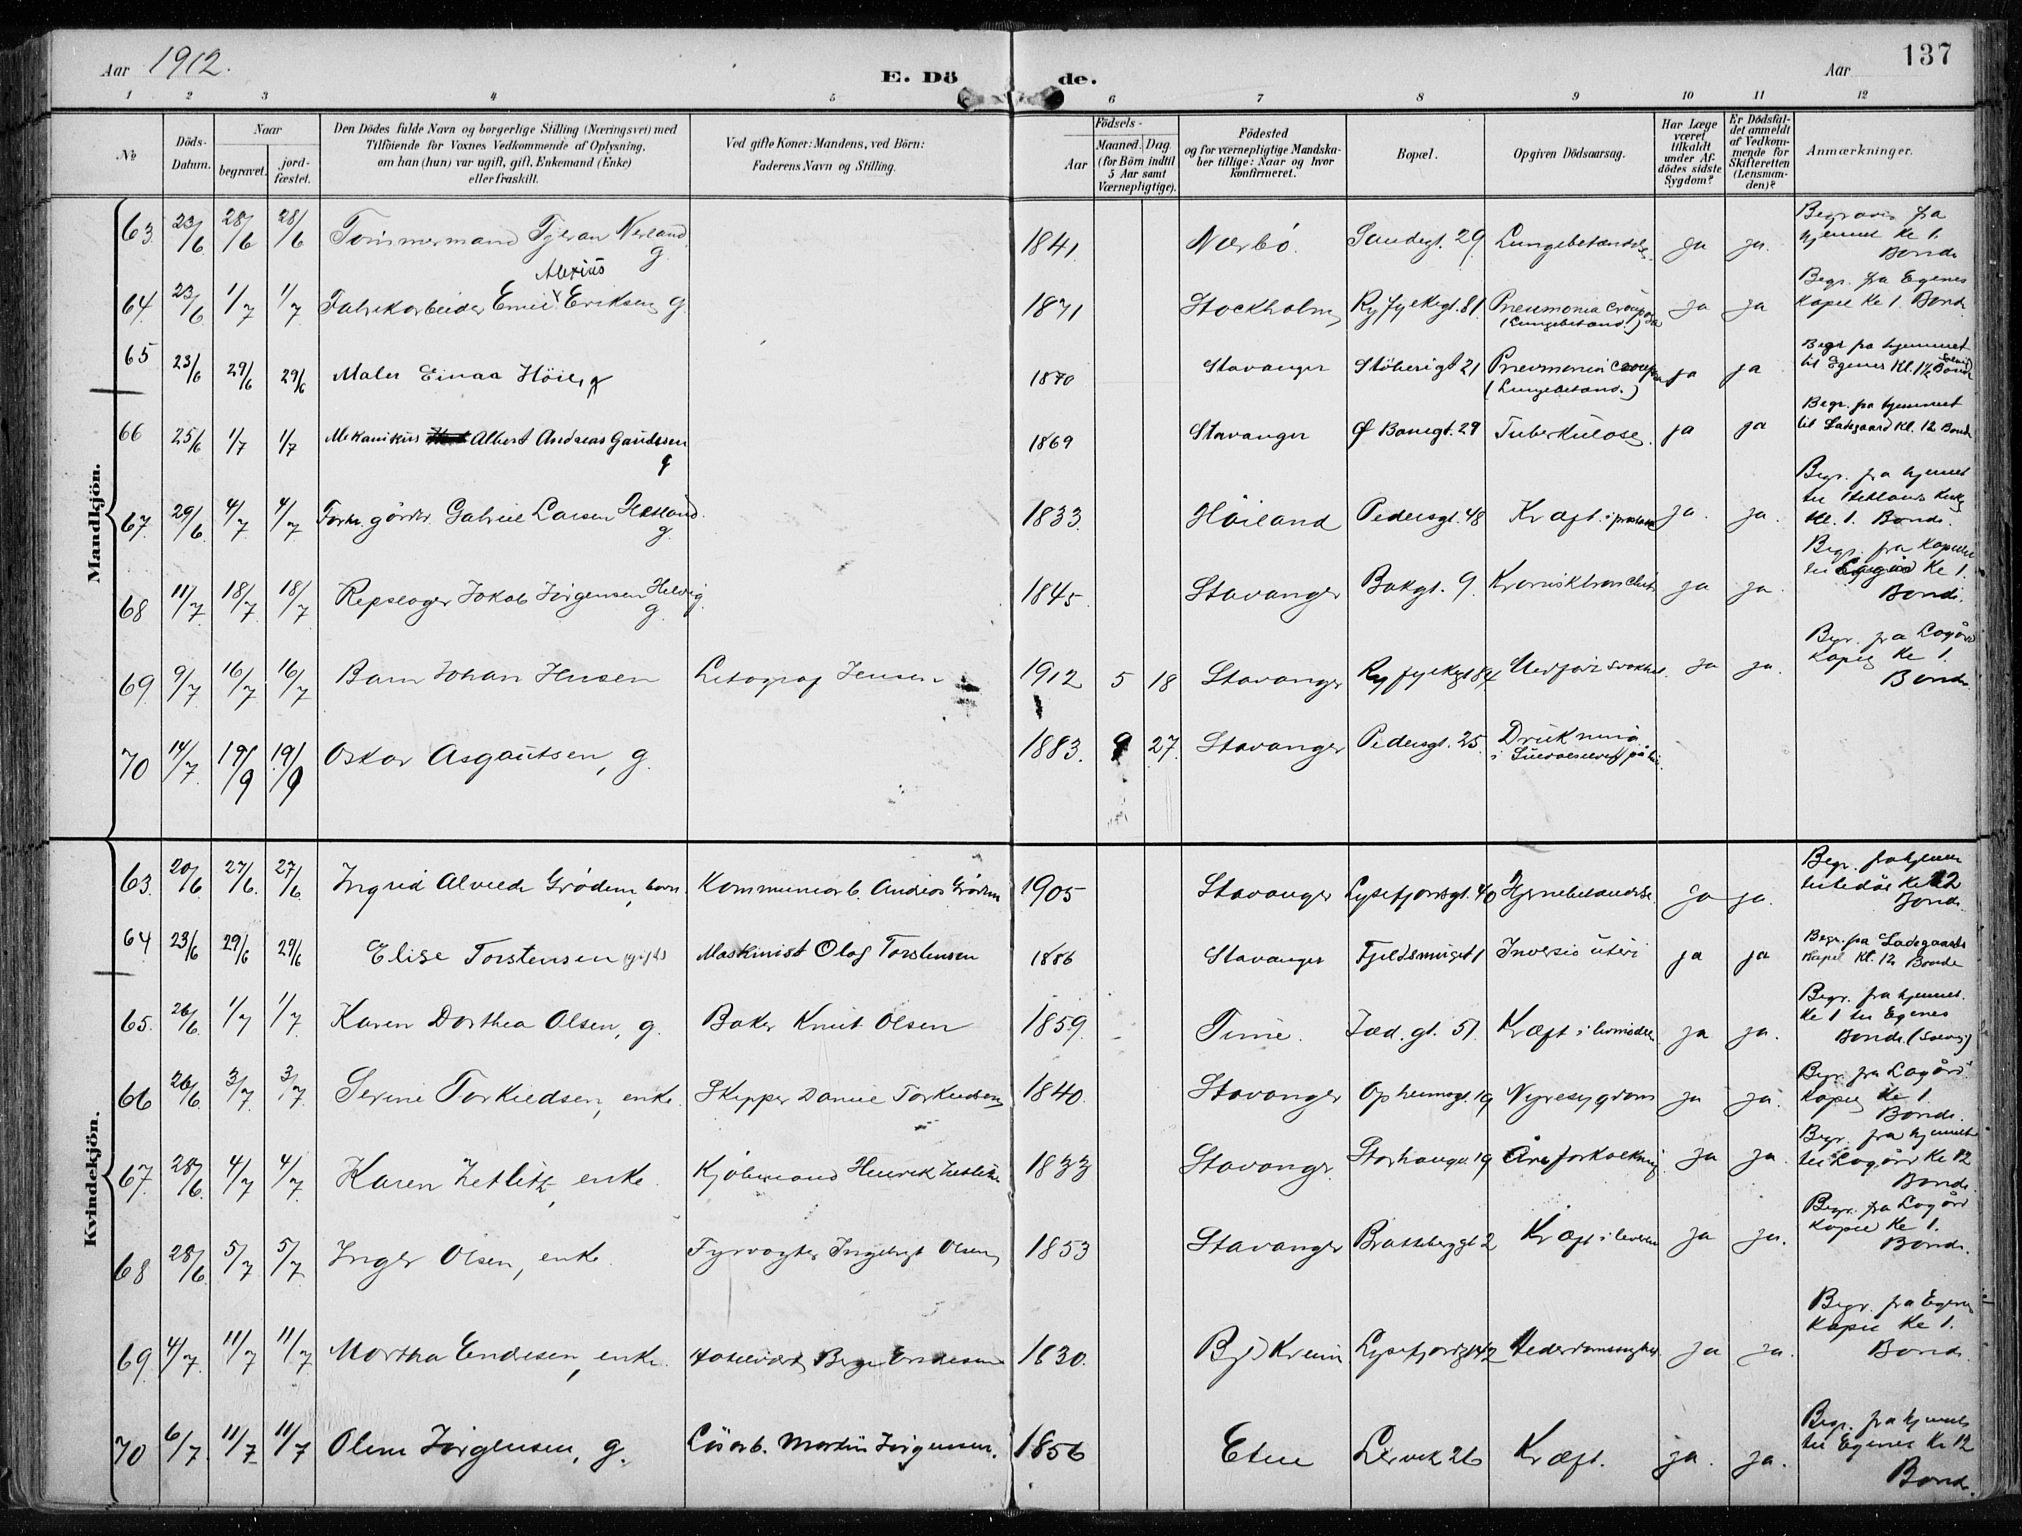 Aar 1912.
E. Döde.
Aar
137
1 2 3 4 5 6 7 8 9 10 11 12
№
Döds-Datum.
Naar
begravet.
jordfæstet.
Den Dödes fulde Navn og borgerlige Stilling (Næringsvei) med
Tilföiende for Voxnes Vedkommende af Oplysning,
om han (hun) var ugift, gift, Enkemand (Enke)
eller fraskilt.
Ved gifte Koner: Mandens, ved Börn:
Faderens Navn og Stilling.
Födsels-
Aar
Maaned. Dag.
(for Börn indtil
5 Aar samt
Værnepligtige).
Födested
og for værnepligtige Mandska-
ber tillige: Naar og hvor
konfirmeret.
Bopæl.
Opgiven Dödsaarsag.
Har Læge
været
tilkaldt
under Af-
dödes sidste
Sygdom?
Er Dödsfal-
det anmeldt
af Vedkom-
mende for
Skifteretten
(Lensman-
den)?
Anmærkninger.
Mandkjön.
63. 23/6 28/6 28/6 Tömmermand Tjeran Nerland g. 1841. Nærbö. Sandegt. 29. Lungebetændelse ja ja. Begraves fra hjemmet Kl 1. Bonde
64. 23/6 1/7 1/7 Fabrikarbeider Emil Alexius Eriksen g 1871 Stockholm Ryfylkegt. 81. Pneumonia crouposa (Lungebetænd.) ja ja Begr. fra Egenes Kapel Kl 1. Bonde.
65 23/6 29/6 29/6 Maler Höile g 1870 Stavanger Stöberigt 21 Pneumonia crouposa (Lungebetænd.) ja ja Begr fra hjemmet til Egenes Kl. 1½ Bonde
66 25/6 1/7 1/7 Mekanikus Albert Andreas Gaudesen g 1869 Stavanger Ø Banegt. 29 Tuberkulose. ja ja Begr. fra hjemmet til Ladegaard Kl. 12 Bonde
67. 29/6 4/7 4/7 Gabriel Larsen Hetland. g. 1833. Höiland Pedersgt. 48 Kræft. i ja. ja. Begr. fra hjemmet til Hetlands Kirkeg Kl. 1. Bonde.
68 11/7 18/7 18/7 Repslager Jakob Jörgensen Helvig. g. 1845. Stavanger Bakgt. 9. Kronisk bronchit ja ja. Begr. fra Kapellet til Kl 1. Bonde.
69 9/7 16/7 16/7 Barn Johan Jensen Litograf Jensen 1912 5 18 Stavanger Ryfylkegt 84 Medfödt svakhet. ja ja. Begr. fra Lagård Kapel Kl 1. Bonde
70 14/7 19/9 19/9 Oskar Asgautsen, g. 1883. 9 27. Stavanger Pedersgt. 25. Drukning i
Kvindekjön.
63. 20/6 27/6. 27/6 Ingrid Alvilde Grödem, barn. Kommunearb. Andreas Grödem 1905 Stavanger Lysefjordsgt. 40 Hjernebetændelse. ja ja. Begr. fra hjemmet Kl 12 Bonde.
64 23/6 29/6 29/6 Elise Torstensen (gift) Maskinist Olaf Torstensen 1886 Stavanger Fjeldsmuget 1 Inversio uteri ja ja Begr. fra Ladegaards Kapel Kl. 12 Bonde
65. 26/6 1/7 1/7 Karen Dorthea Olsen, g. Baker Knut Olsen 1859. Time. Jæd. gt. 51. Kræft i livmoder ja ja. Begr. fra hjemmet. Kl 1 til Egenes Bonde.
66 26/6 3/7 3/7 Serine Torkildsen, enke. Skipper Daniel Torkildsen 1840. Stavanger Opheimsgt. 19 Nyresygdom ja ja. Begr. fra Lagård Kapel Kl 1. Bonde.
67. 28/6 4/7 4/7 Karen Zetlitz, enke. Kjöbmand Henrik Zetlitz 1833 Stavanger Storhaugv. 19 Åreforkalkning ja ja. Begr. fra hjemmet til Lagård Kl 12 Bonde.
68 28/6. 5/7 5/7 Inger Olsen, enke. Fyrvogter Ingebrigt Olsen 1853 Stavanger Brattebergt 2 Kræft i leveren ja ja. Begr. fra Lagård Kapel Kl 1. Bonde.
69. 4/7. 11/7 11/7 Martha Endresen, enke. Endresen 1830. Bjerkreim Lysefjordsgt 42 Alderdomssvaghet. ja ja. Begr. fra Egenes Kapel Kl 1. Bonde.
70 6/7. 11/7 11/7 Oline Jörgensen, g. Lösarb. Martin Jörgensen. 1856 Etne Lervik 26 Kræft. ja. ja. Begr. fra hjemmet til Egenes Kl 12 Bonde.